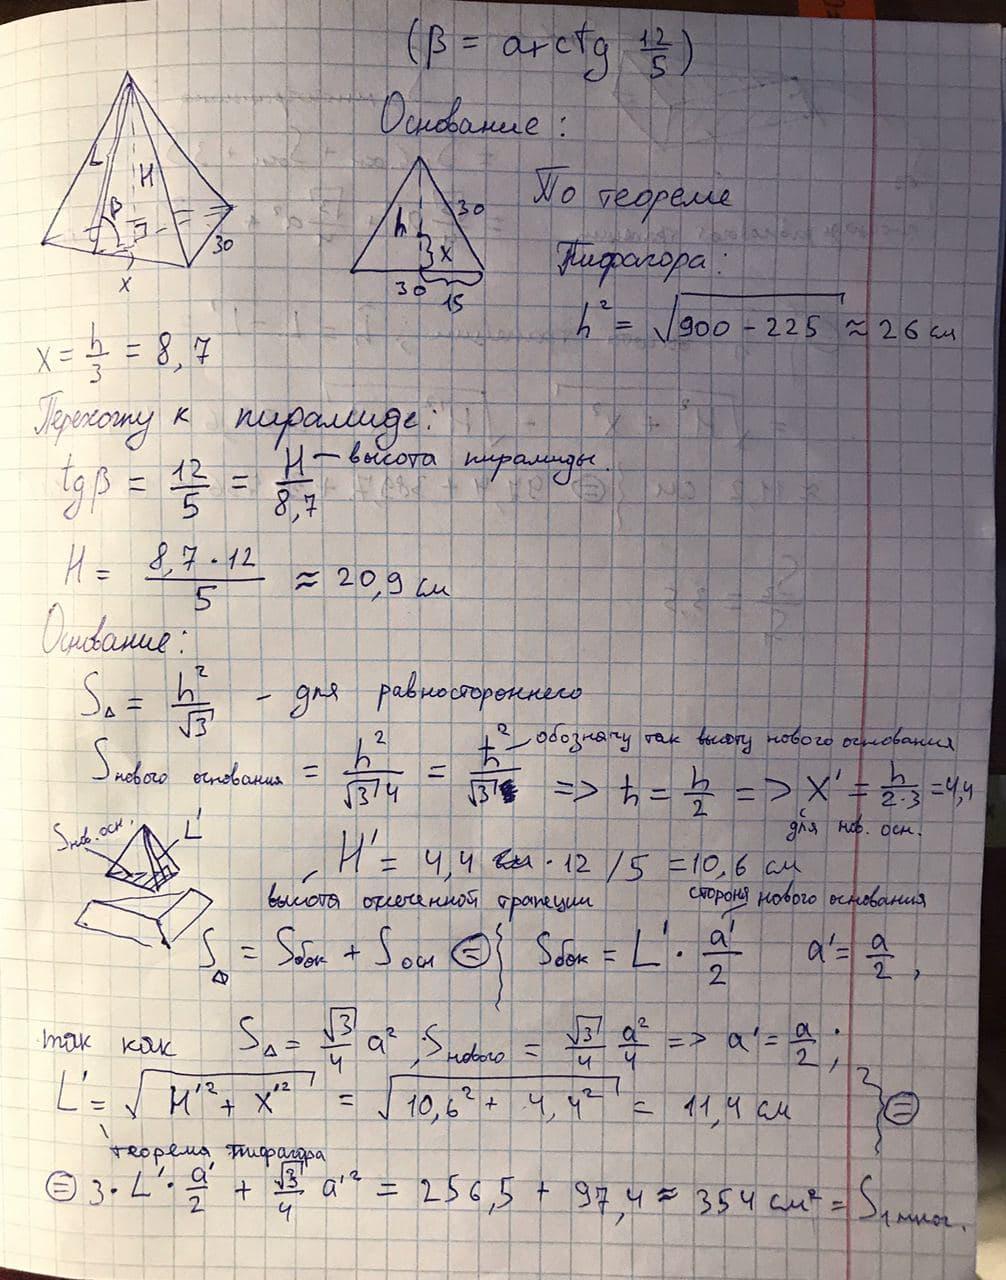 (β = arctg 12/5)
Основание:
L
H
β
x
30
h
30
x
30
15
По теореме
Пифагора:
h² = √(900 - 225) ≈ 26 см
x = h/3 = 8,7
Перехожу к пирамиде:
tgβ = 12/5 = H/8,7 — высота пирамиды.
H = (8,7 · 12)/5 ≈ 20,9 см
Основание:
S△ = h²/√3 - для равностороннего
Sнового основания = h²/(√3 4) = ħ²/√3 => ħ = h/2 => x' = h/(2·3) = 4,4
обозначу так высоту нового основания
для нов. осн.
Sнов. осн.
L'
H' = 4,4 · 12 / 5 = 10,6 см
высота отсеченной трапеции
сторона нового основания
S△ = Sбок + Sосн ⊜ { Sбок = L' · a'/2 a' = a/2 ,
так как S△ = √3/4 a² , Sнового = √3/4 a²/4 => a' = a/2 ;
L' = √(H'² + x'²) = √(10,6² + 4,4²) = 11,4 см } ⊜
теорема Пифагора
⊜ 3 · L' · a'/2 + √3/4 a'² = 256,5 + 97,4 ≈ 354 см² = S1 мног.